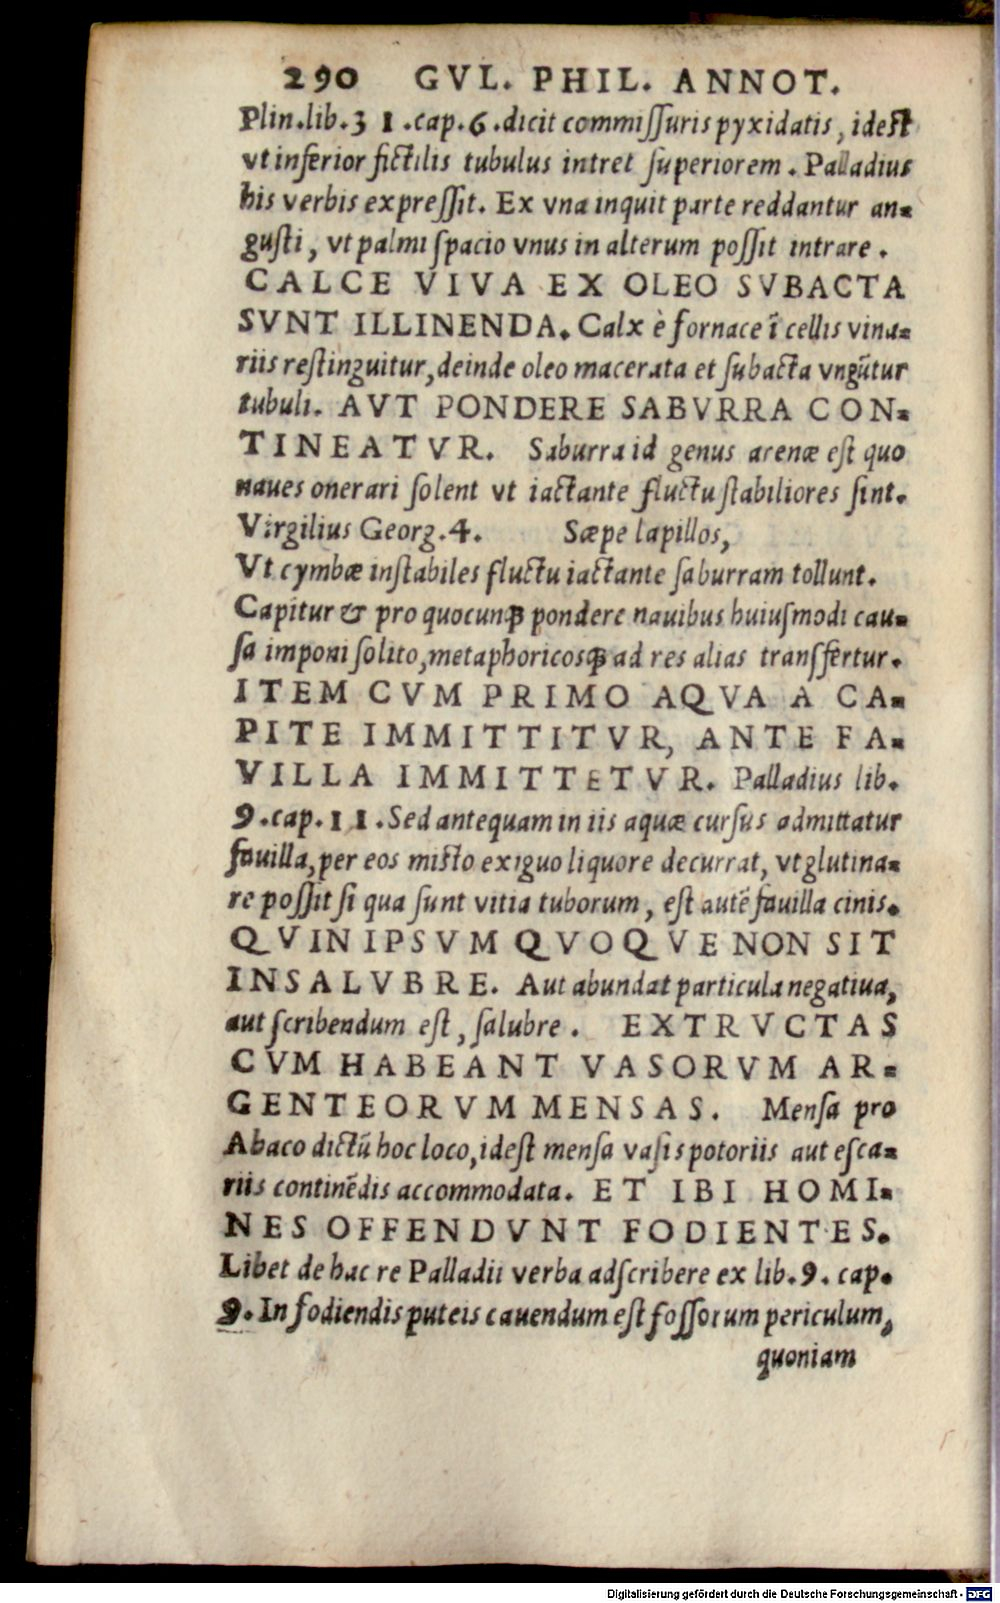 290 GVL. PHIL. ANNOT.
Plin.lib.31.cap.6.dicit commiſſuris pyxidatis, ideſt
vt inferior fictilis tubulus intret ſuperiorem. Palladius
his verbis expreſſit. Ex vna inquit parte reddantur an-
guſti, vt palmi ſpacio vnus in alterum poſſit intrare.
CALCE VIVA EX OLEO SVBACTA
SVNT ILLINENDA. Calx è fornace ī cellis vina-
riis reſtinguitur, deinde oleo macerata et ſubacta vngūtur
tubuli. AVT PONDERE SABVRRA CON-
TINEATVR. Saburra id genus arenæ eſt quo
naues onerari ſolent vt iactante fluctu ſtabiliores ſint.
Virgilius Georg.4. Sæpe lapillos,
Vt cymbæ inſtabiles fluctu iactante ſaburram tollunt.
Capitur & pro quocunqꝫ pondere nauibus huiuſmodi cau-
ſa imponi ſolito, metaphoricosqꝫ ad res alias transfertur.
ITEM CVM PRIMO AQVA A CA-
PITE IMMITTITVR, ANTE FA-
VILLA IMMITTETVR. Palladius lib.
9.cap.11. Sed antequam in iis aquæ curſus admittatur
fauilla, per eos miſto exiguo liquore decurrat, vt glutina-
re poſſit ſi qua ſunt vitia tuborum, eſt autē fauilla cinis.
QVIN IPSVM QVOQVE NON SIT
INSALVBRE. Aut abundat particula negatiua,
aut ſcribendum eſt, ſalubre. EXTRVCTAS
CVM HABEANT VASORVM AR-
GENTEORVM MENSAS. Menſa pro
Abaco dictū hoc loco, ideſt menſa vaſis potoriis aut eſca-
riis continēdis accommodata. ET IBI HOMI-
NES OFFENDVNT FODIENTES.
Libet de hac re Palladii verba adſcribere ex lib.9. cap.
9. In fodiendis puteis cauendum eſt foſſorum periculum,
quoniam
Digitalisierung gefördert durch die Deutsche Forschungsgemeinschaft - DFG